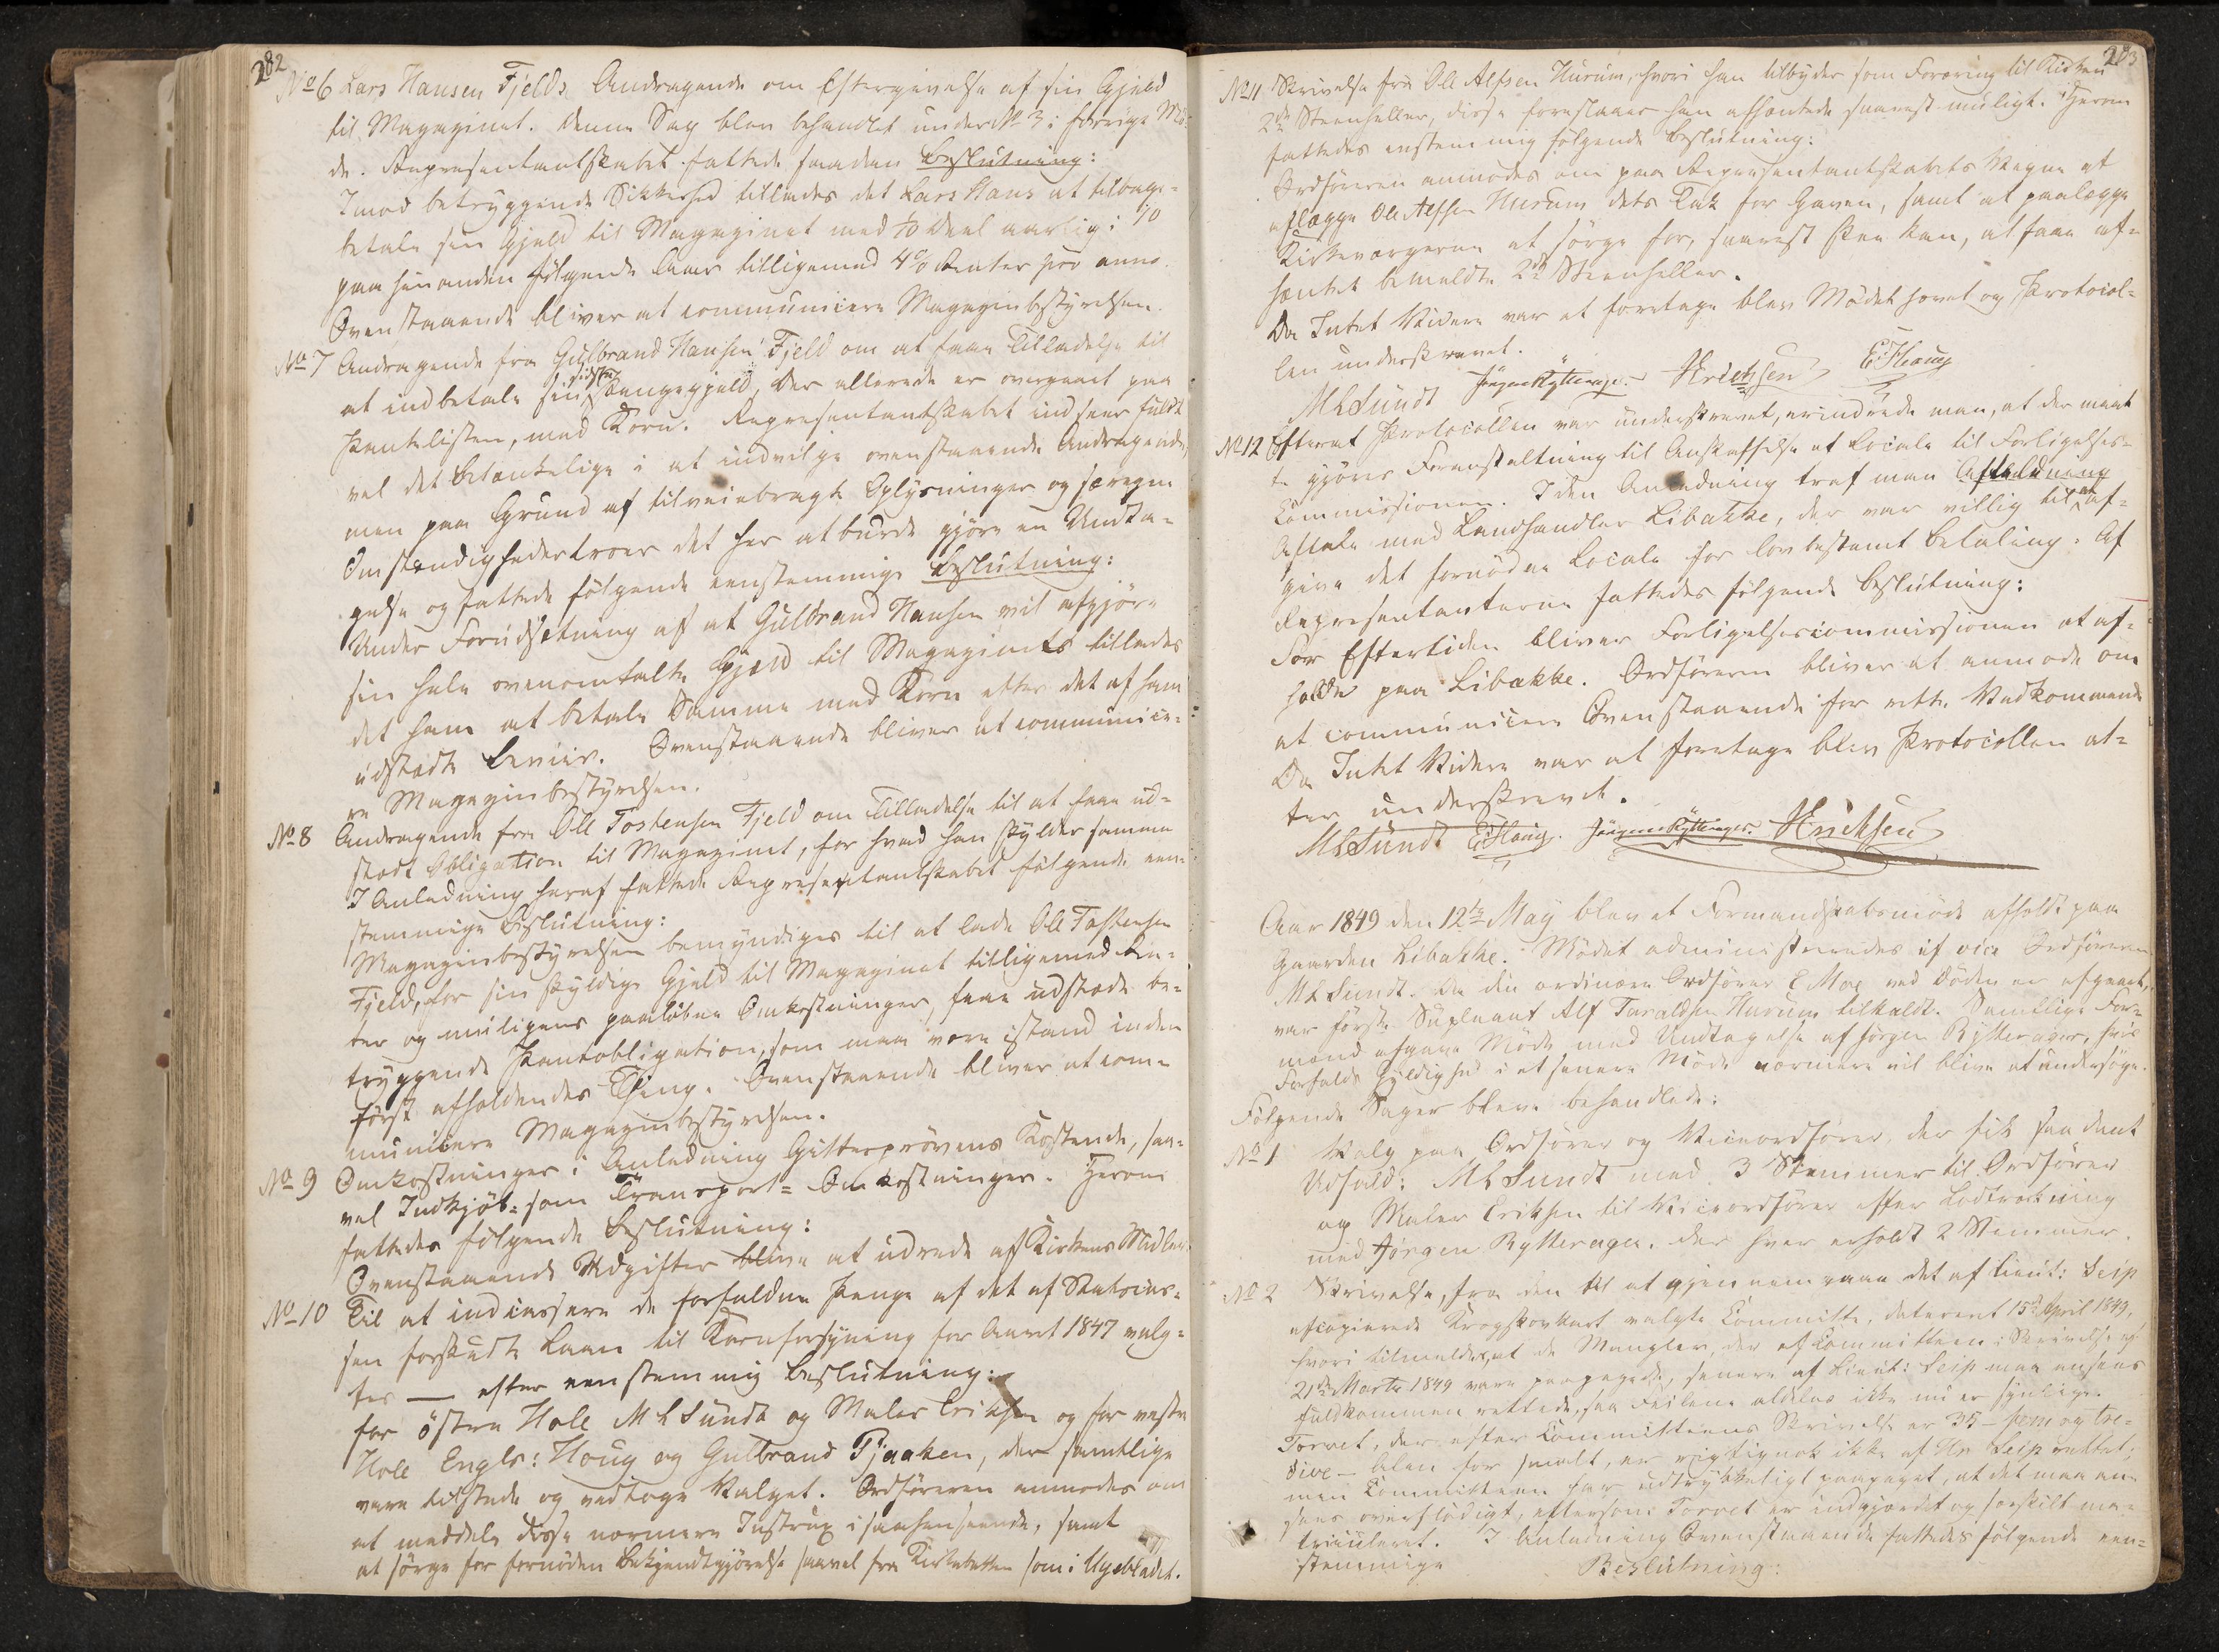 282
No 6 Lars Hansen Fjelds Andragende om Eftergivelse af sin Gjæld
til Magazinet. Denne Sag blev behandlet under No 3 i forrige Mö-
de. Repræsentantskabet fattede saadan Beslutning:
Imod betryggende Sikkerhed tillades det Lars Hans at tilbage-
betale sin Gjæld til Magazinet med 1/10 Deel aarlig i 10
paa hinanden fölgende Aar tilligemed 4% Renter pro anno.
Ovenstaaende bliver at communicere Magazinbestyrelsen.
No 7 Andragende fra Gulbrand Hansen Fjeld om at faae Tilladelse til
at indbetale sin sidste Pengegjæld, der allerede er overgaaet paa
Pantelisten, med Korn. Repræsentantskabet indseer fuldt
vel det Betænkelige i at indvilge ovenstaaende Andragende,
men paa Grund af tilveiebragte Oplysninger og særegne
Omstændigheder troer det her at burde gjöre en Undta-
gelse og fattede fölgende eenstemmige Beslutning:
Under Forudsætning af at Gulbrand Hansen vil afgjöre
sin hele ovenomtalte Gjæld til Magazinet tillades
det ham at betale Samme med Korn efter det af ham
udstædte Beviis. Ovenstaaende bliver at communice-
re Magazinbestyrelsen.
No 8 Andragende fra Ole Tostensen Fjeld om Tilladelse til at faae ud-
stædt Obligation til Magazinet, for hvad han skylder samme
I Anledning heraf fattede Repræsentantskabet fölgende een-
stemmige Beslutning:
Magazinbestyrelsen bemyndiges til at lade Ole Tostensen
Fjeld, for sin skyldige Gjæld til Magazinet tilligemed Ren-
ter og muligens paalöbne Omkostninger, faae udstæde be-
tryggende Pantobligation, som maa være istand inden
först afholdendes Thing. Ovenstaaende bliver at com-
municere Magazinbestyrelsen.
No 9 Omkostninger i Anledning Gitterprövens Kostende, saa-
vel Indkjöb- som Transport- Omkostninger. Herom
fattedes fölgende Beslutning:
Ovenstaaende Udgifter blive at udrede af Kirkens Midler.
No 10 Til at indcassere de forfaldne Penge af det af Statscas-
sen forskudte Laan til Kornforsyning for Aaret 1847 valg-
tes — efter eenstemmig Beslutning:
for östre Hole M L Sundt og Maler Eriksen og for vestre
Hole Engbr: Houg og Gulbrand Pjaaken, der samtlige
vare tilstede og vedtoge Valget. Ordföreren anmodes om
at meddele disse nærmere Instrux i saahenseende, samt
at sörge for fornöden Bekjendtgjörelse saavel fra Kirkebakken som i Ugebladet.
283
No 11 Skrivelse fra Ole Alfsen Hurum, hvori han tilbyder som Foræring til Kirken
2de Steenheller, disse foreslaaer han afhentede snarest muligt. Herom
fattedes eenstemmig fölgende Beslutning:
Ordföreren anmodes om paa Repræsentantskabets Vegne at
aflægge Ole Alfsen Hurum dets Tak for Gaven, samt at paalægge
Kirkeværgerne at sörge for, snarest skee kan, at faae af-
hentet bemeldte 2de Steenheller.
Da Intet Videre var at foretage blev Mödet hævet og Protocol-
len underskrevet.
MLSundt Jörgen Rytterager. HEriksen E: Houg
No 12 Efterat Protocollen var underskrevet, erindrede man, at der maat-
te gjöres Foranstaltning til Anskaffelse af Locale til Forligelses-
Commissionen. I den Anledning traf man
Aftale med Landhandler Libakke, der var villig til at af-
give det fornödne Locale for lovbestemt Betaling. Af
Repræsentanterne fattedes fölgende Beslutning:
For Eftertiden bliver Forligelsescommissionen at af-
holde paa Libakke. Ordföreren bliver at anmode om
at communicere Ovenstaaende for rette Vedkommende
Da Intet Videre var at foretage blev Protocollen at-
ter underskrevet.
MLSundt E:Houg. Jörgen Rytterager. HEriksen
Aar 1849 den 12te May blev et Formandskabsmöde afholdt paa
Gaarden Libakke. Mödet administreredes af vice Ordföreren
M L Sundt. Da den ordinære Ordförer E Moe ved Döden er afgaaet,
var förste Supleant Alf Taraldsen Hurum tilkaldt. Samtlige For-
mænd afgave Möde med Undtagelse af Jörgen Rytterager, hvis
Forfalds Gyldighed i et senere Möde nærmere vil blive at undersöge.
Fölgende Sager bleve behandlede:
No 1 Valg paa Ordförer og Viceordförer, der fik saadant
Udfald: M L Sundt med 3 Stemmer til Ordförer
og Maler Eriksen til Viceordförer efter Lodtrækning
med Jörgen Rytterager. der hver erholdt 2 Stemmer.
No 2 Skrivelse, fra den til at gjennemgaae det af Lieut: Seip
afcopierede Krogskovkart valgte Committe, dateret 15de April 1849,
hvori tilmeldes, at de Mangler, der af Committeen i Skrivelse af
21de Marts 1849 vare paapegede, senere af Lieut: Seip maa ansees
fuldkommen rettede, saa Feilene aldeles ikke nu er synlige.
Torvet, der efter Committeens Skrivelse er 35 — fem og tre-
dive — Alen for smalt, er rigtignok ikke af Hr Seip rettet;
men Committeen har udtrykkeligt paapeget, at det maa an-
sees overflödigt, eftersom Torvet er indgjærdet og særskilt ma-
triculeret. I Anledning Ovenstaaende fattedes fölgende een-
stemmige Beslutning: